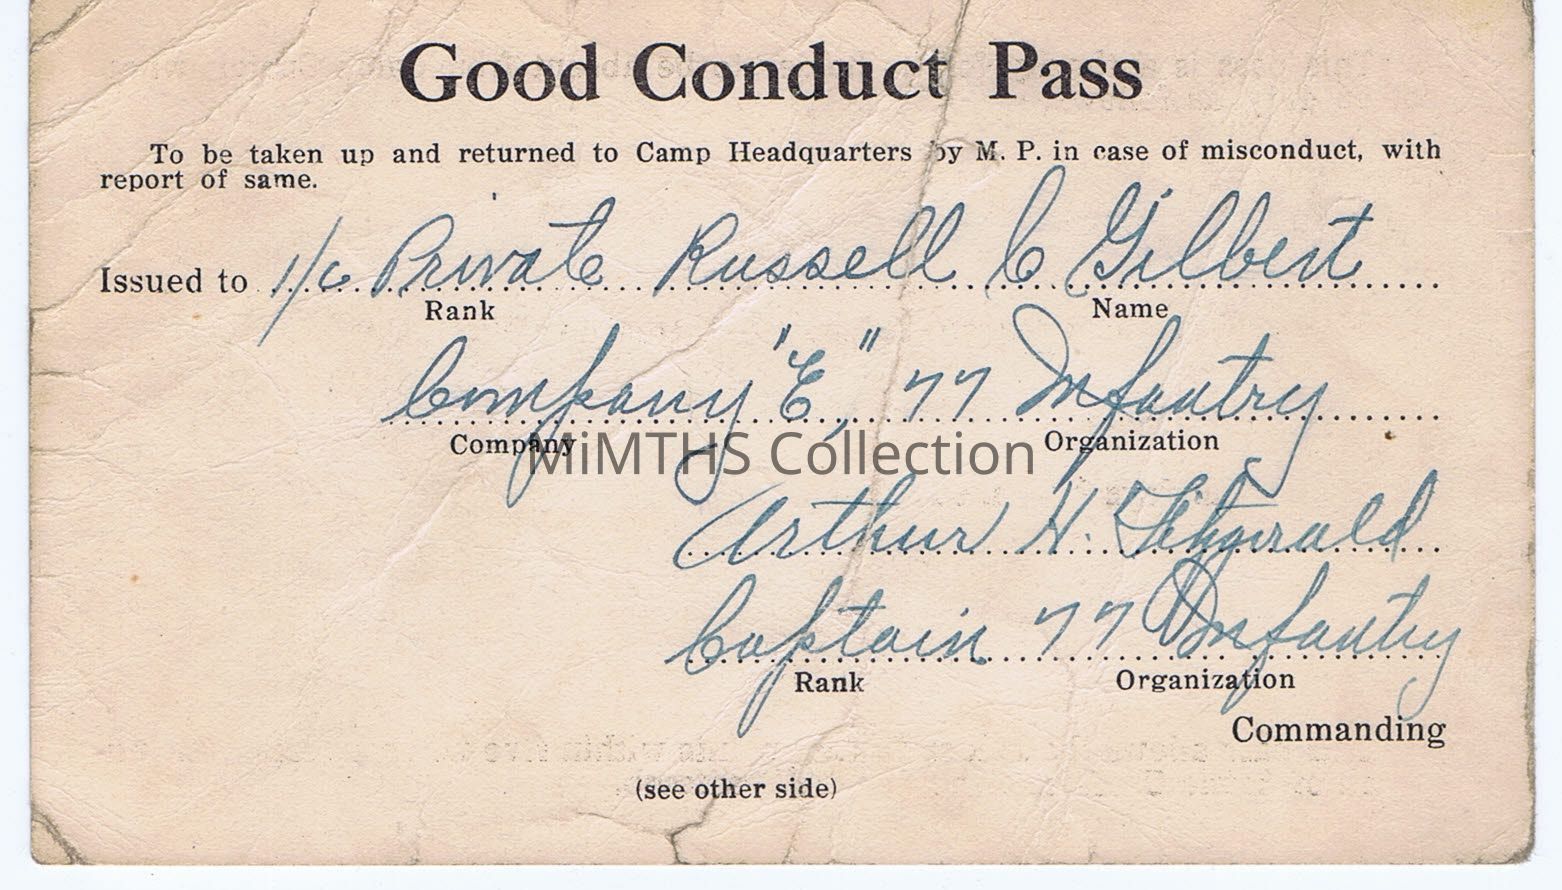 Good Conduct Pass
To be taken up and returned to Camp Headquarters by M. P. in case of misconduct, with
report of same.
Issued to 1/c Private Russell C Gilbert
Rank Name
Company "E", 77 Infantry
Company Organization
MiMTHS Collection
Arthur H. Fitzgerald
Captain 77 Infantry
Rank Organization
Commanding
(see other side)